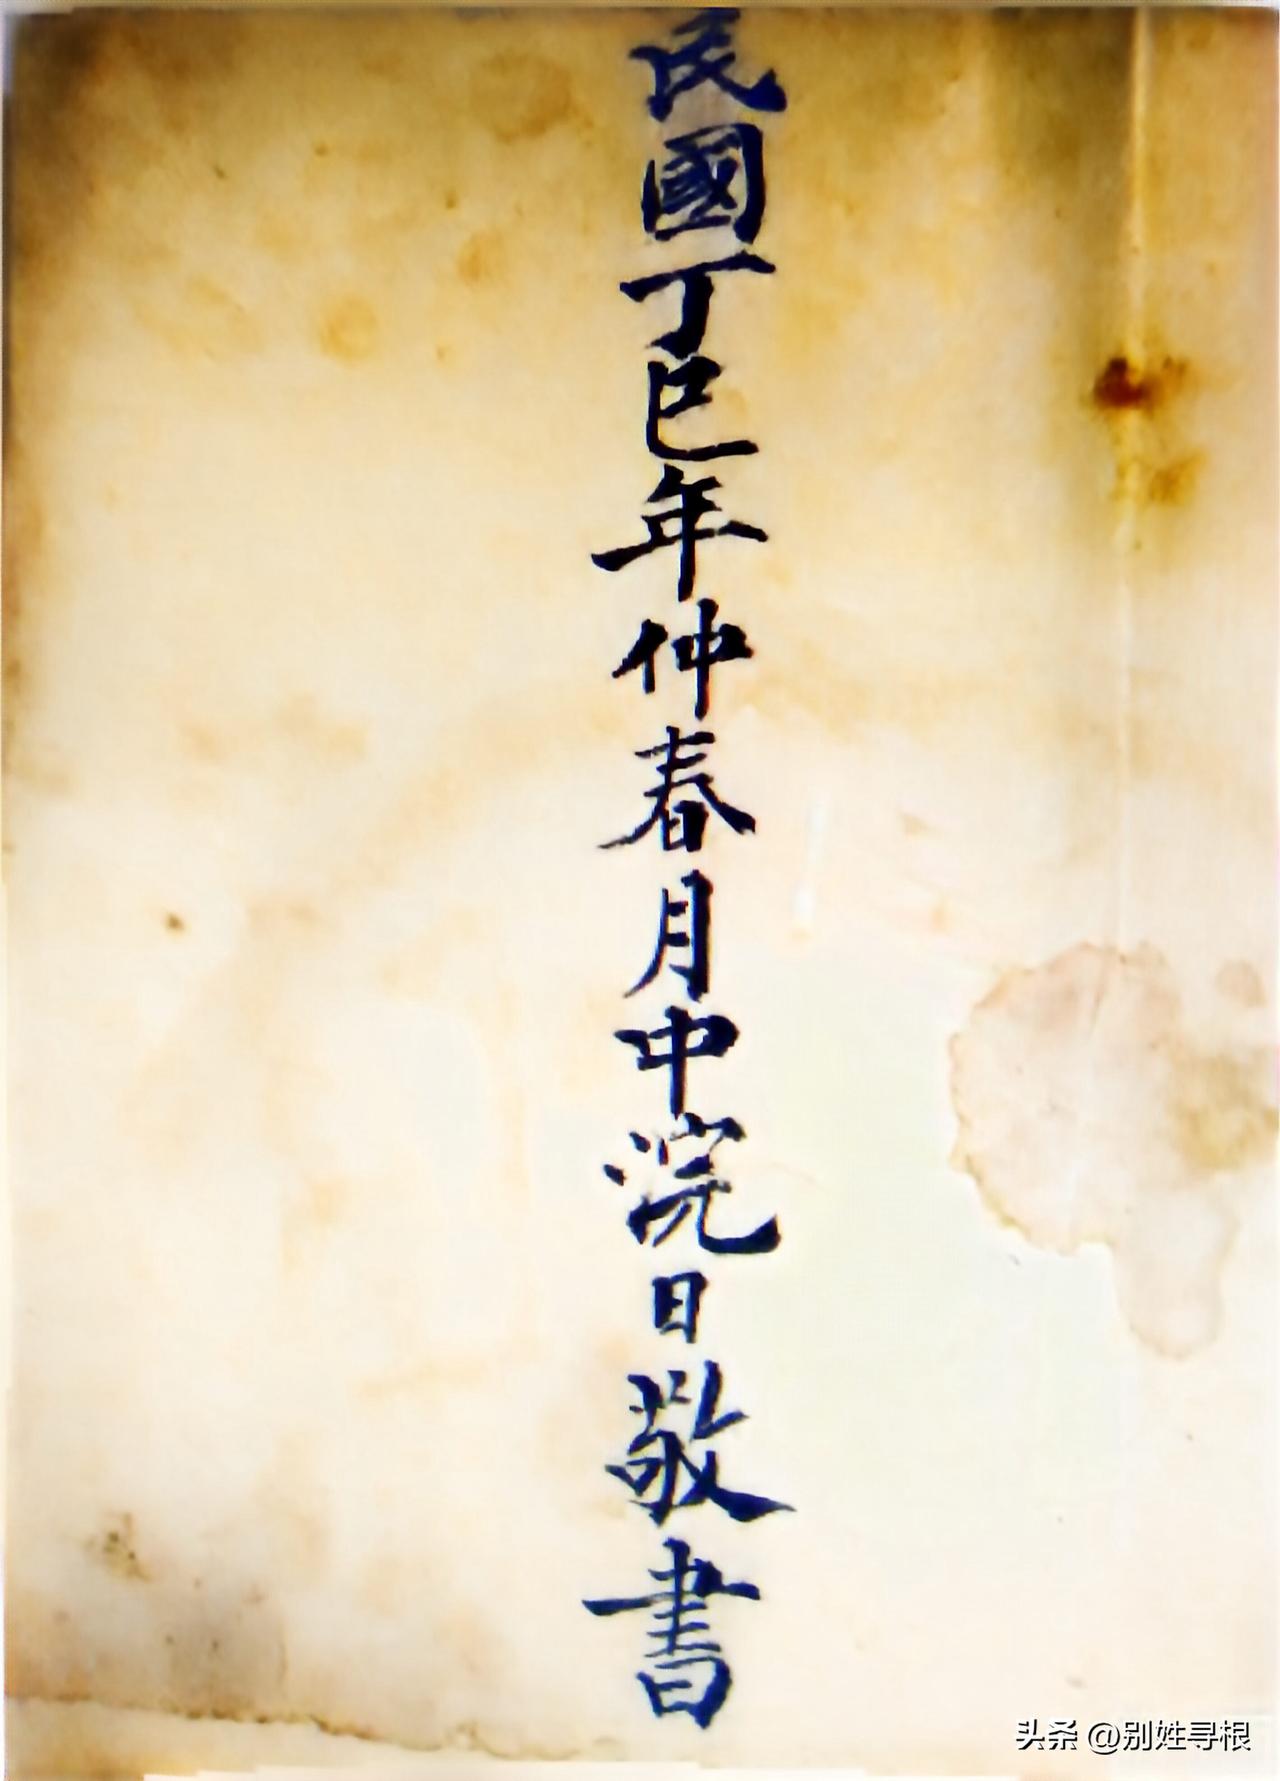 民國丁巳年仲春月中浣日敬書
头条 @别姓寻根